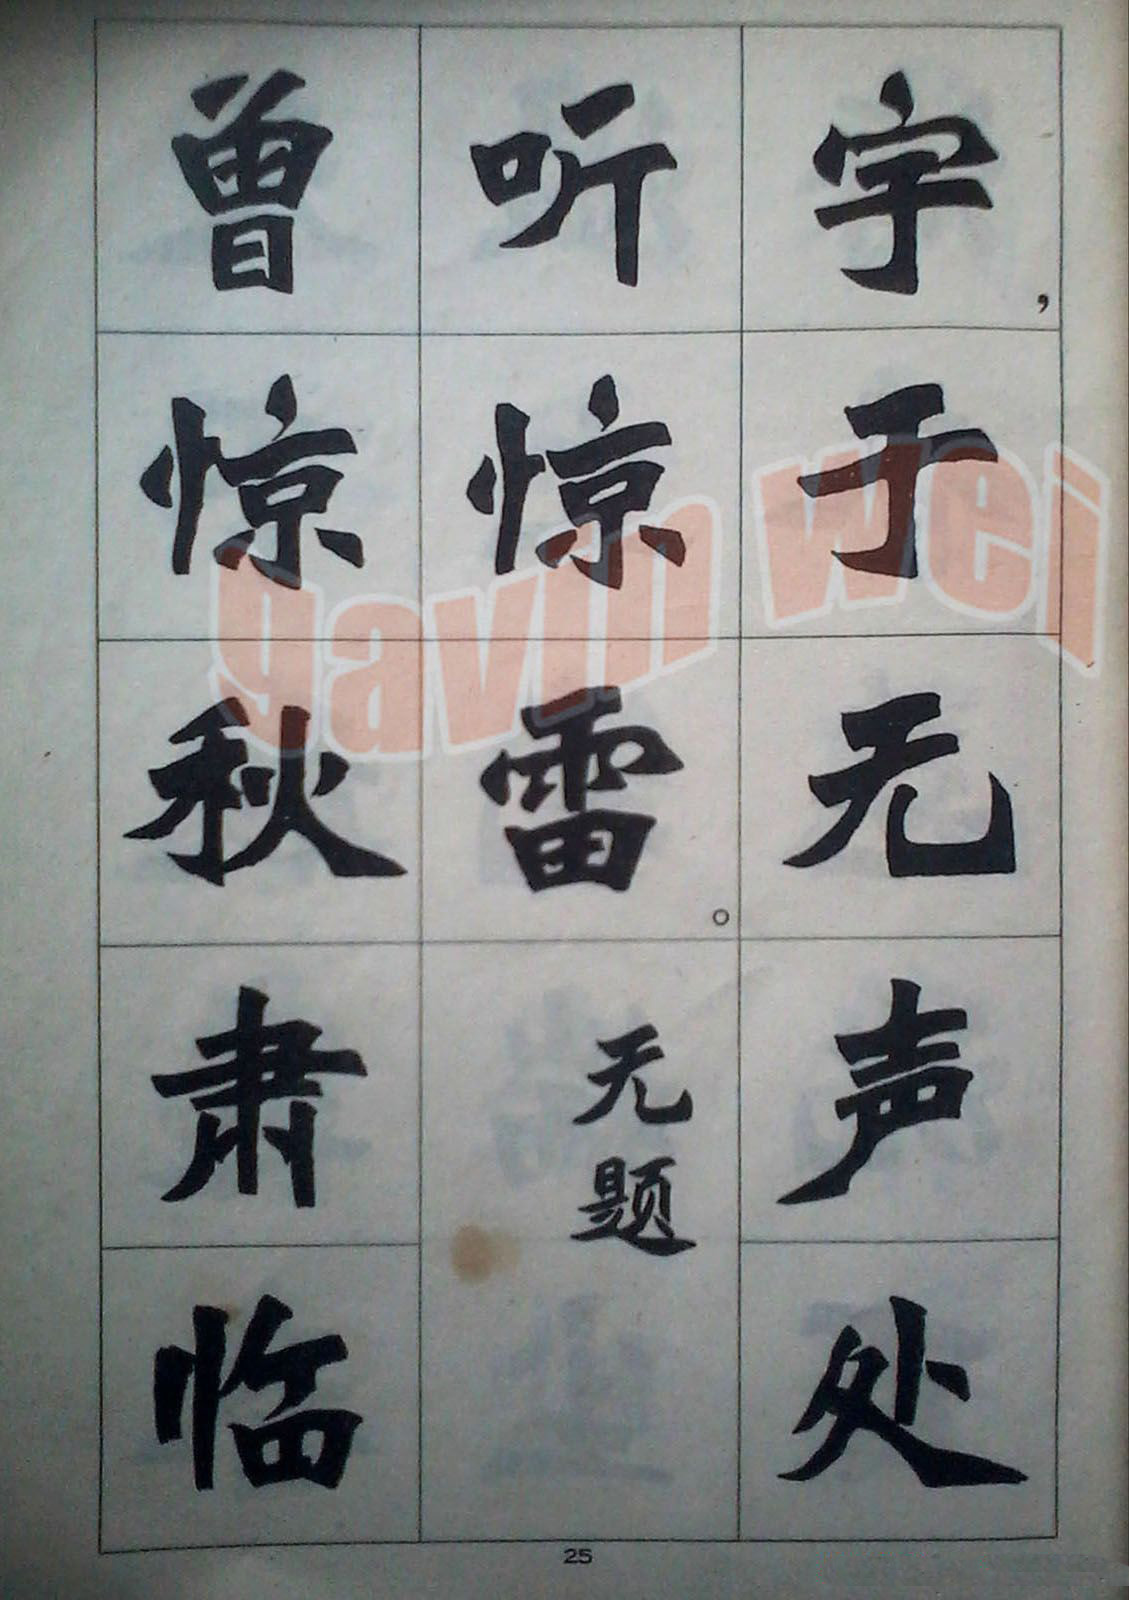 宇，于无声处
听惊雷。
无题
曾惊秋肃临
25
gavin wei